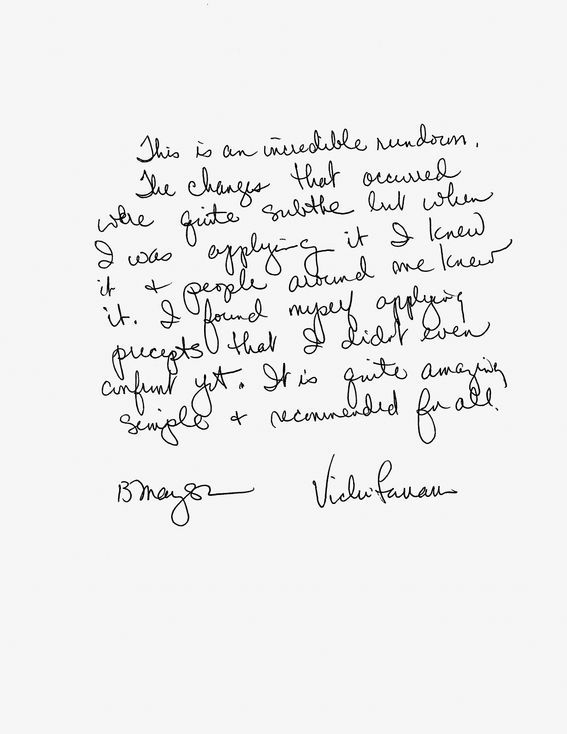 This is an incredible rundown.
The changes that occurred
were quite subthe but when
I was applying it I knew
it + people around me knew
it. I found myself applying
precepts that I didn't even
confront yet. It is quite amazing
simple + recommended for all.
13 May 82 Vicki